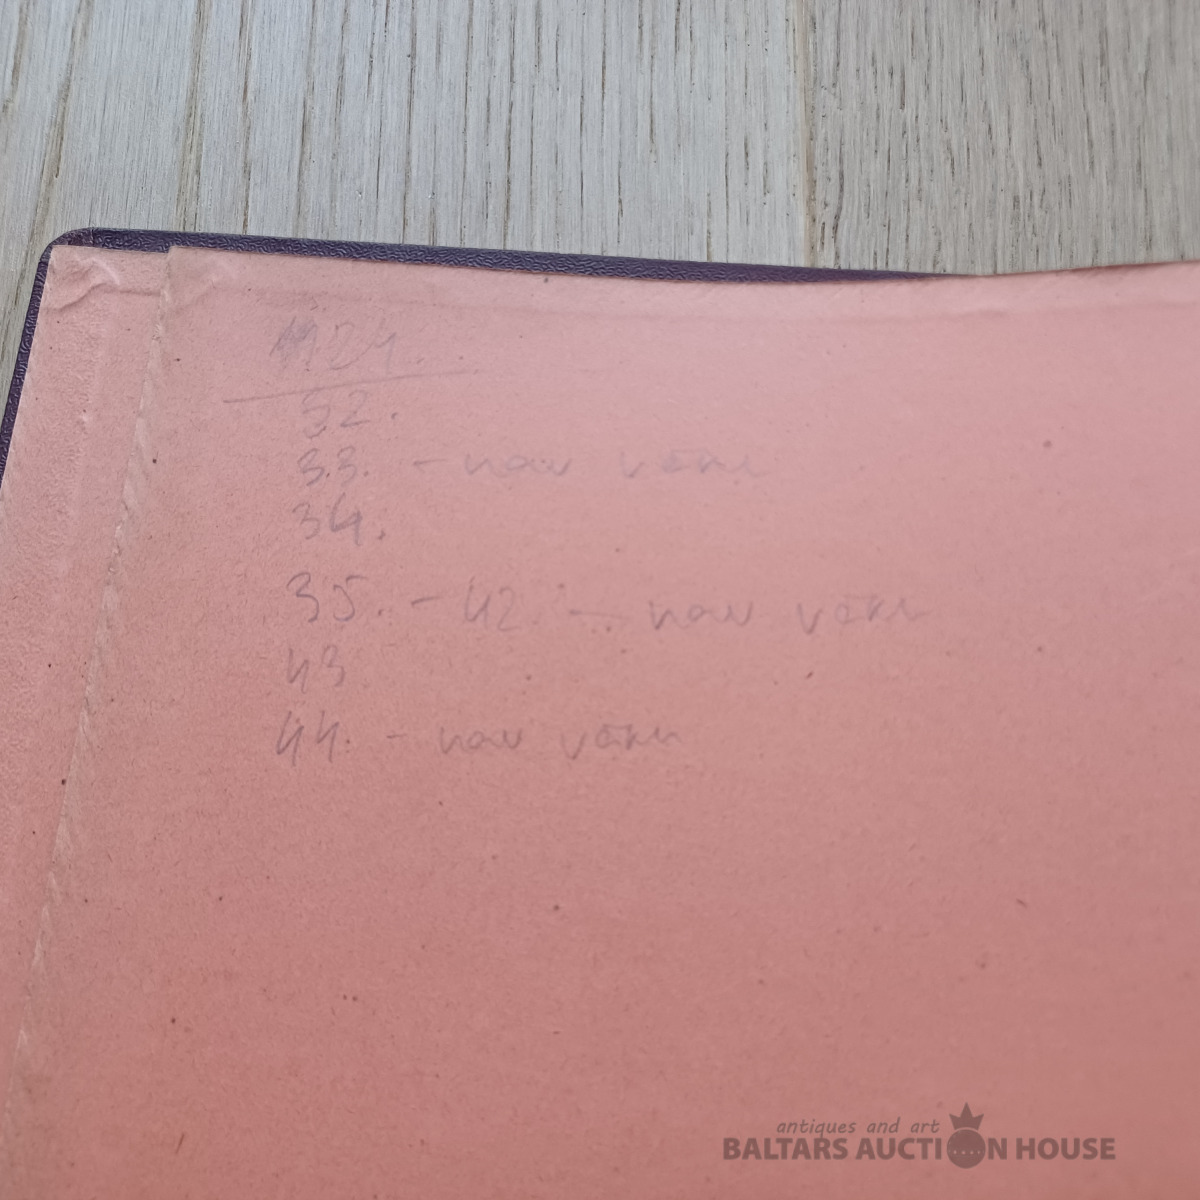 1924.
32.
33. - nav vāku
34.
35. - 42. - nav vāku
43
44. - nav vāku
antiques and art
BALTARS AUCTION HOUSE